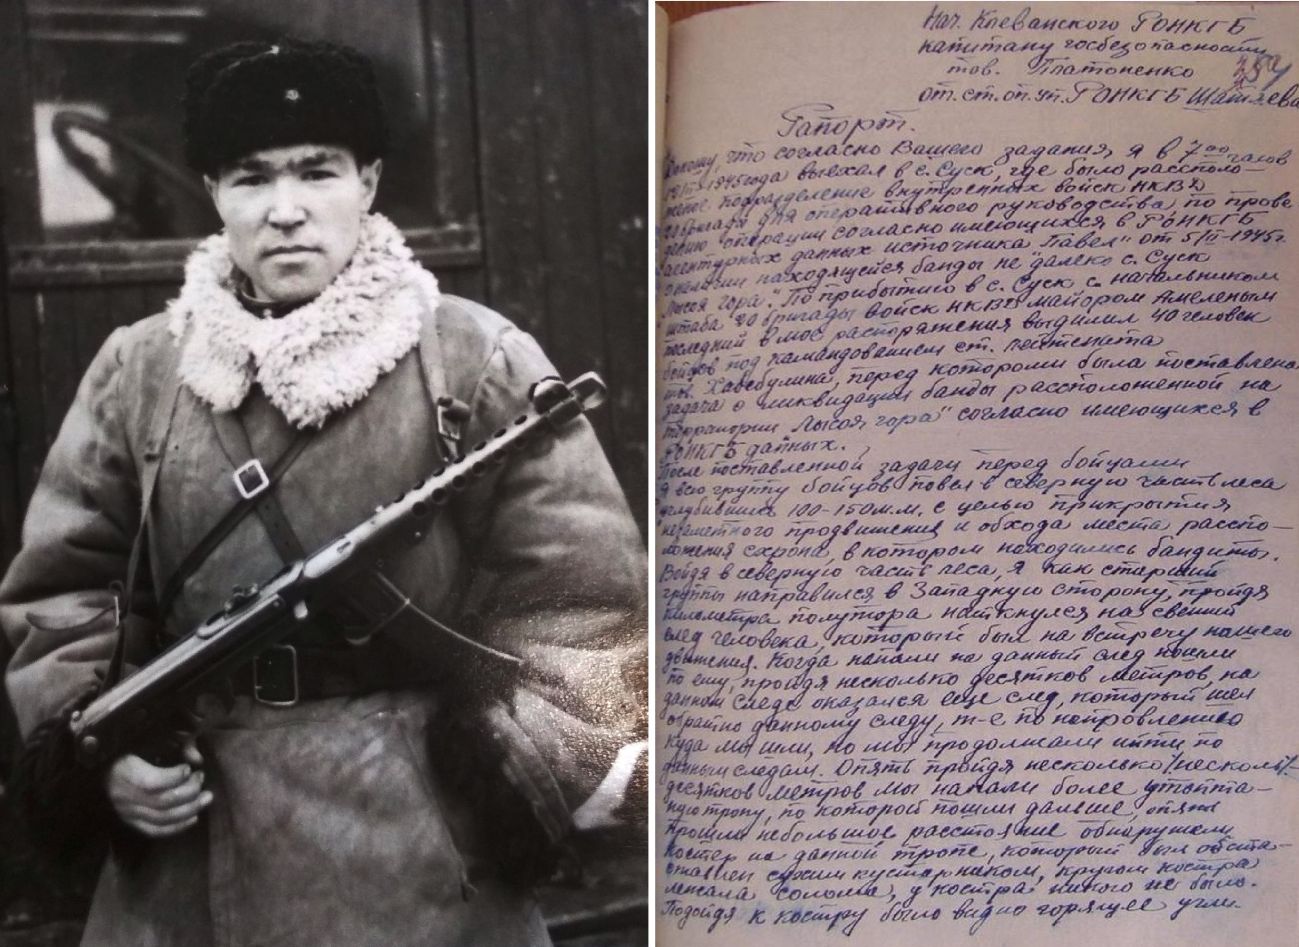 Нач. Клеванского РОНКГБ
капитану госбезопасности
тов. Платоненко
от ст. оп. уп. РОНКГБ
Рапорт.
что согласно Вашего задания я в 7 00 часов
1945 года выехал в с. Суск, где было располо-
подразделение внутренных войск НКВД
бригада для оперативного руководства по прове-
операции согласно имеющихся в РОНКГБ
агентурных данных источника "Павел" от 5/III-1945г.
о наличии находящейся банды не далеко с. Суск
"Лысая гора". По прибытию в с. Суск с начальником
штаба 20 бригады войск НКВД майором Амелиным
последний в мое распоряжения выдилил 40 человек
бойцов под командованием ст. лейтенанта
тов. Хабебулина, перед которыми была поставлена
задача о ликвидации банды рассположенной на
территории "Лысая гора" согласно имеющихся в
РОНКГБ данных.
После поставленной задачи перед бойцами
я всю группу бойцов повел в северную часть леса
углубившись 100-150 м.м. с целью прикрытия
незаметного продвижения и обхода места расспо-
ложения схрона, в котором находились бандиты.
Войдя в северную часть леса, я как старший
группы направился в Западную сторону, пройдя
километра полутора наткнулся на свежий
след человека, который был на встречу нашего
движения. Когда напали на данный след пошли
по ему, пройдя несколько десятков метров, на
данном следе оказался еще след, который шел
обратно данному следу, т-е по направлению
куда мы шли, но мы продолжали итти по
данным следам. Опять пройдя несколько /несколь/-
десятков метров мы напали более утопта-
ную тропу, по которой пошли дальше, опять
прошли небольшое расстояние обнаружели
костер на данной тропе, который был обста-
ставлен сухим кустарником, кругом костра
лежала солома, у костра никого не было.
Подойдя к костру было видно горящее угли.